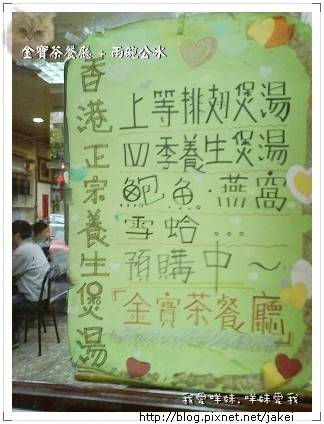 金寶茶餐廳 + 兩碗公冰
香港正宗養生煲湯
上等排翅煲湯
四季養生煲湯
鮑魚...燕窩
雪蛤...
預購中~
「金寶茶餐廳」
我愛咩妹.咩妹愛我
http://blog.pixnet.net/jakei